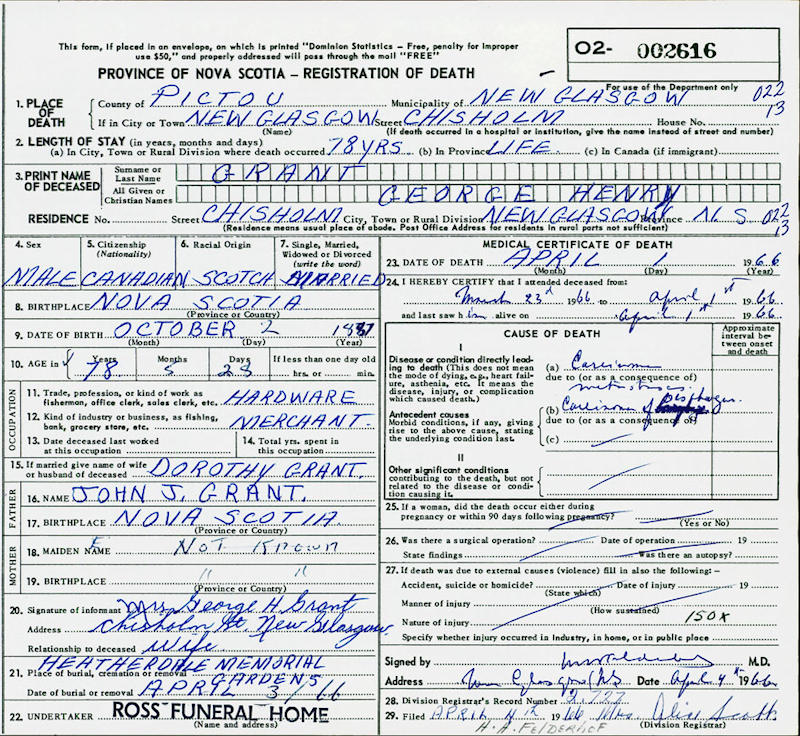 This form, if placed in an envelope, on which is printed "Dominion Statistics – Free, penalty for improper
use $50," and properly addressed will pass through the mail "FREE"
O2- 002616
PROVINCE OF NOVA SCOTIA – REGISTRATION OF DEATH
For use of the Department only
1. PLACE OF DEATH County of PICTOU Municipality of NEW GLASGOW 022
If in City or Town NEW GLASGOW Street CHISHOLM House No. 13
(Name) (If death occurred in a hospital or institution, give the name instead of street and number)
2. LENGTH OF STAY (in years, months and days)
(a) In City, Town or Rural Division where death occurred 78 YRS. (b) In Province LIFE (c) In Canada (if immigrant)
3. PRINT NAME OF DECEASED Surname or Last Name GRANT
All Given or Christian Names GEORGE HENRY
RESIDENCE No. Street CHISHOLM City, Town or Rural Division NEW GLASGOW Province N. S 022
(Residence means usual place of abode. Post Office Address for residents in rural parts not sufficient) 13
4. Sex 5. Citizenship (Nationality) 6. Racial Origin 7. Single, Married, Widowed or Divorced (write the word)
MALE CANADIAN SCOTCH MARRIED
8. BIRTHPLACE NOVA SCOTIA
(Province or Country)
9. DATE OF BIRTH OCTOBER 2 1887
(Month) (Day) (Year)
10. AGE in Years Months Days If less than one day old
78 5 28 hrs. or min.
OCCUPATION
11. Trade, profession, or kind of work as fisherman, office clerk, sales clerk, etc. HARDWARE
12. Kind of industry or business, as fishing, bank, grocery store, etc. MERCHANT.
13. Date deceased last worked at this occupation 14. Total yrs. spent in this occupation
15. If married give name of wife or husband of deceased DOROTHY GRANT.
FATHER
16. NAME JOHN J. GRANT.
17. BIRTHPLACE NOVA SCOTIA.
(Province or Country)
MOTHER
18. MAIDEN NAME Not Known
19. BIRTHPLACE " "
(Province or Country)
20. Signature of informant Mrs George H. Grant
Address Chisholm St. New Glasgow.
Relationship to deceased Wife
21. Place of burial, cremation or removal HEATHERDALE MEMORIAL GARDENS
Date of burial or removal APRIL 3/66
22. UNDERTAKER ROSS FUNERAL HOME
(Name and address)
MEDICAL CERTIFICATE OF DEATH
23. DATE OF DEATH APRIL 1 1966
(Month) (Day) (Year)
24. I HEREBY CERTIFY that I attended deceased from:
March 23d 1966 to April 1st 1966
and last saw him alive on April 1st 1966.
CAUSE OF DEATH
Approximate interval between onset and death
I
Disease or condition directly leading to death (This does not mean the mode of dying, e.g., heart failure, asthenia, etc. It means the disease, injury, or complication which caused death.)
(a) Carcinoma
due to (or as a consequence of)
Antecedent causes
Morbid conditions, if any, giving rise to the above cause, stating the underlying condition last.
(b) Carcinoma of esophagus
due to (or as a consequence of)
(c)
II
Other significant conditions
contributing to the death, but not related to the disease or condition causing it.
25. If a woman, did the death occur either during
pregnancy or within 90 days following pregnancy?
(Yes or No)
26. Was there a surgical operation? Date of operation 19
State findings Was there an autopsy?
27. If death was due to external causes (violence) fill in also the following:–
Accident, suicide or homicide? Date of injury 19
(State which)
Manner of injury
(How sustained)
Nature of injury 150X
Specify whether injury occurred in industry, in home, or in public place
Signed by M.D.
Address New Glasgow NS Date April 4th 1966
28. Division Registrar's Record Number 2,727
29. Filed APRIL 4th 1966 Mrs. Alice Scott
(Division Registrar)